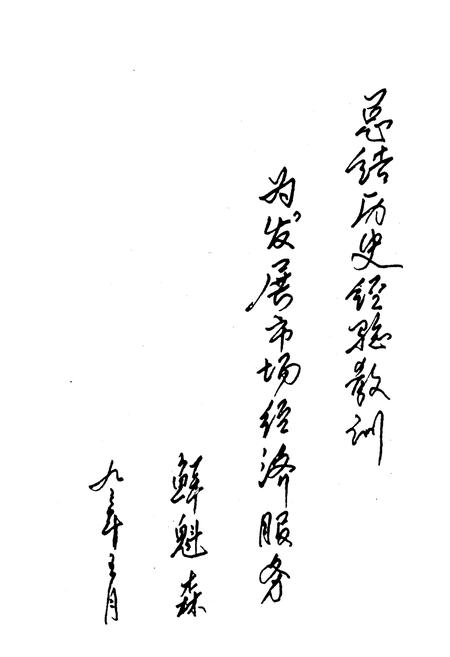 总结历史经验教训
为发展市场经济服务
鲜魁森
九三年五月